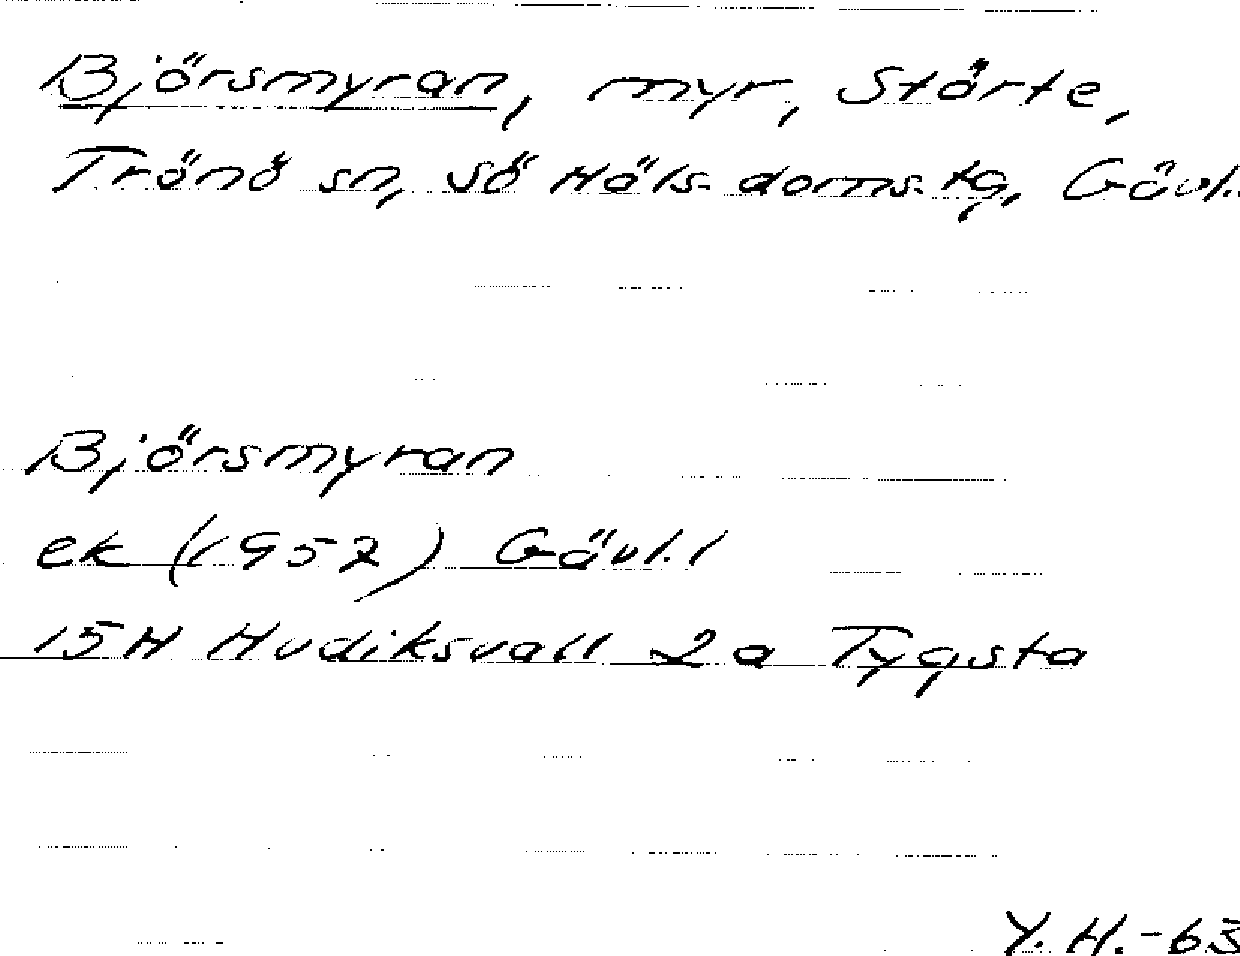 Björsmyran, myr, Störte,
Trönö sn, Sö Häls. doms. tg, Gävl.
Björsmyran
ek (1952) Gävl. l
15H Hudiksvall 2a Tygsta
Y. H. -63